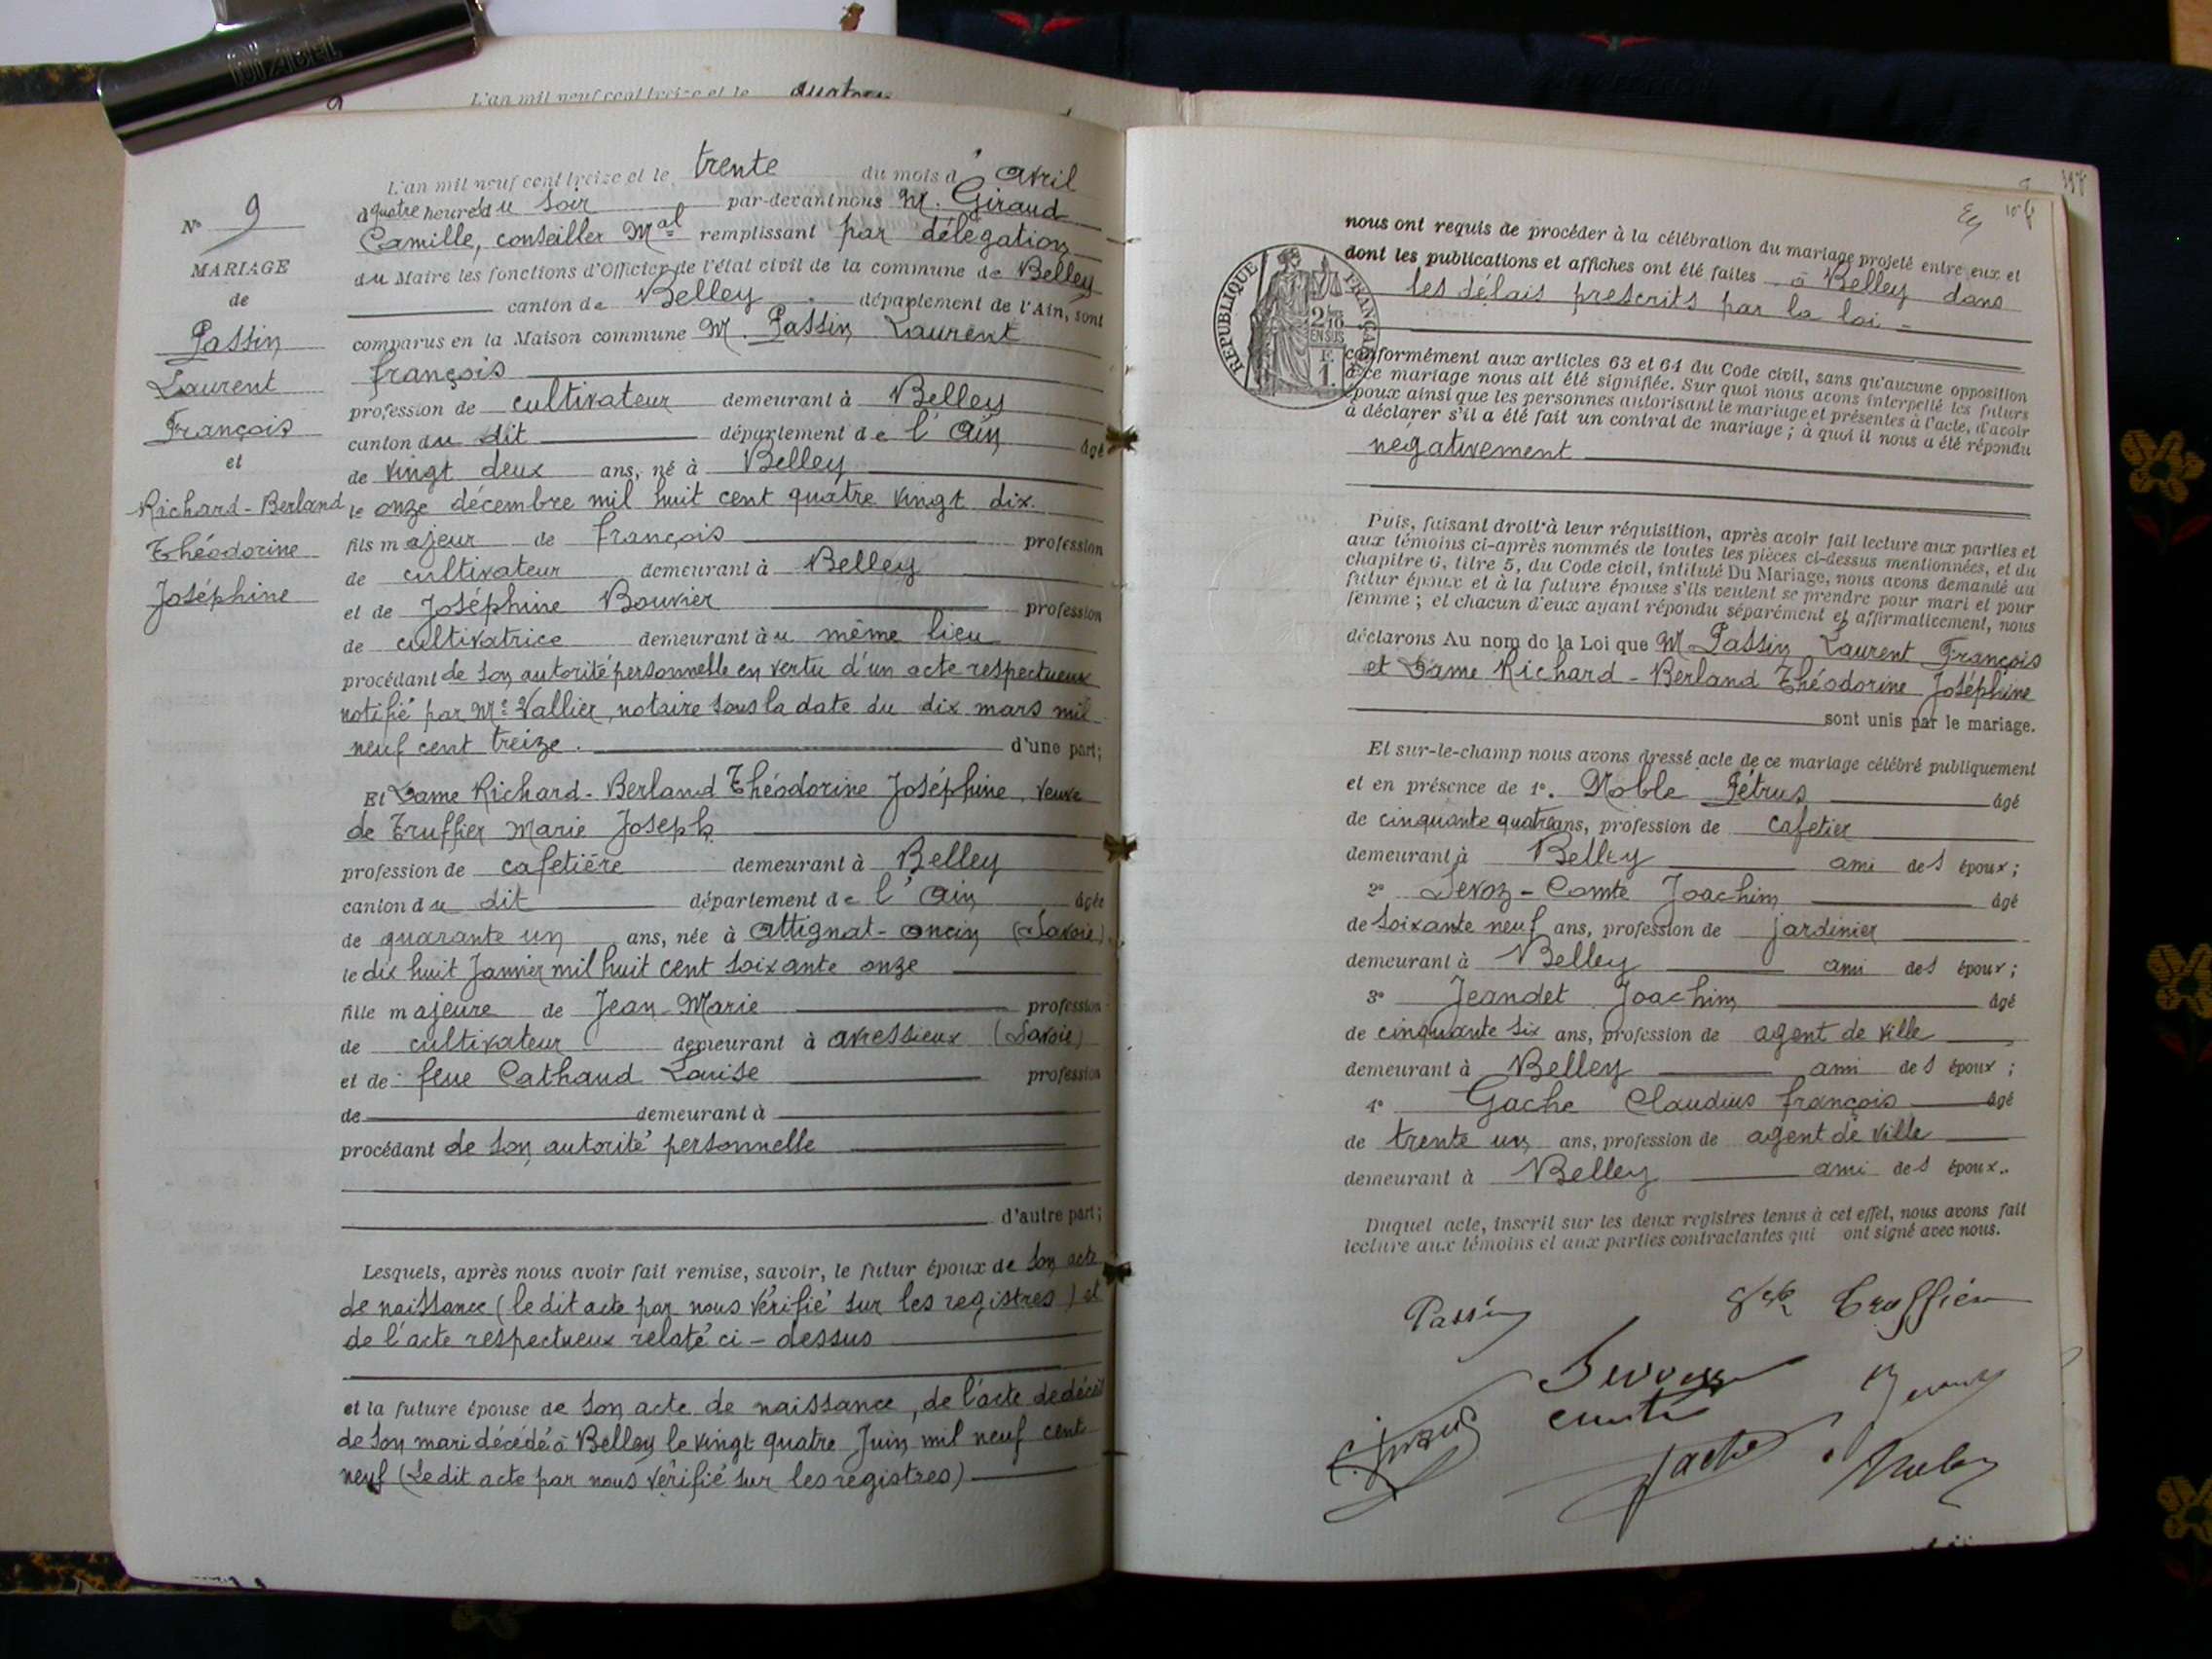 DIZABEL
L'an mil neuf cent treize et le quatorze
N° 9
MARIAGE
de
Passin
Laurent
François
et
Richard-Berland
Théodorine
Joséphine
L'an mil neuf cent treize et le trente du mois d' avril
à quatre heures du soir par-devant nous M. Giraud
Camille, conseiller Mal remplissant par délégation
du Maire les fonctions d'Officier de l'état civil de la commune de Belley
canton de Belley département de l'Ain, sont
comparus en la Maison commune M. Passin Laurent
françois
profession de cultivateur demeurant à Belley
canton du dit département de l'Ain âgé
de vingt deux ans, né à Belley
le onze décembre mil huit cent quatre vingt dix.
fils majeur de françois profession
de cultivateur demeurant à Belley
et de Joséphine Bouvier profession
de cultivatrice demeurant àu même lieu
procédant de son autorité personnelle en vertu d'un acte respectueux
notifié par Me Vallier, notaire sous la date du dix mars mil
neuf cent treize. d'une part;
Et Dame Richard-Berland Théodorine Joséphine, veuve
de Truffier Marie Joseph
profession de cafetière demeurant à Belley
canton du dit département de l'Ain âgée
de quarante un ans, née à Attignat-oncin (Savoie)
le dix huit Janvier mil huit cent soixante onze
fille majeure de Jean-Marie profession
de cultivateur demeurant à avressieux (Savoie)
et de feue Cathaud Louise profession
de demeurant à
procédant de son autorité personnelle
d'autre part;
Lesquels, après nous avoir fait remise, savoir, le futur époux de son acte
de naissance (le dit acte par nous vérifié sur les registres) et
de l'acte respectueux relaté ci-dessus
et la future épouse de son acte de naissance, de l'acte de décès
de son mari décédé à Belley le vingt quatre Juin mil neuf cent
neuf (Ledit acte par nous vérifié sur les registres)
nous ont requis de procéder à la célébration du mariage projeté entre eux et
dont les publications et affiches ont été faites à Belley dans
les délais prescrits par la loi -
REPUBLIQUE FRANÇAISE
2/10
EN SUS
F.
1.
conformément aux articles 63 et 64 du Code civil, sans qu'aucune opposition
à ce mariage nous ait été signifiée. Sur quoi nous avons interpellé les futurs
époux ainsi que les personnes autorisant le mariage et présentes à l'acte, d'avoir
à déclarer s'il a été fait un contrat de mariage ; à quoi il nous a été répondu
négativement
Puis, faisant droit à leur réquisition, après avoir fait lecture aux parties et
aux témoins ci-après nommés de toutes les pièces ci-dessus mentionnées, et du
chapitre 6, titre 5, du Code civil, intitulé Du Mariage, nous avons demandé au
futur époux et à la future épouse s'ils veulent se prendre pour mari et pour
femme ; et chacun d'eux ayant répondu séparément et affirmativement, nous
déclarons Au nom de la Loi que M Passin Laurent François
et Dame Richard-Berland Théodorine Joséphine
sont unis par le mariage.
Et sur-le-champ nous avons dressé acte de ce mariage célébré publiquement
et en présence de 1°. Noble Pétrus âgé
de cinquante quatre ans, profession de cafetier
demeurant à Belley ami des époux ;
2° Sevoz-Comte Joachim âgé
de soixante neuf ans, profession de jardinier
demeurant à Belley ami des époux ;
3° Jeandet Joachim âgé
de cinquante six ans, profession de agent de ville
demeurant à Belley ami des époux ;
4° Gache Claudius françois âgé
de trente un ans, profession de agent de ville
demeurant à Belley ami des époux..
Duquel acte, inscrit sur les deux registres tenus à cet effet, nous avons fait
lecture aux témoins et aux parties contractantes qui ont signé avec nous.
Passin
Truffier